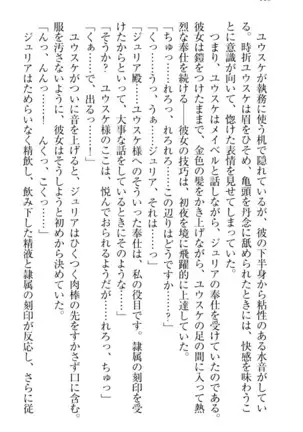 ユウスケが執務に使う机で隠れているが、彼の下半身から粘性のある水音がしてい
る。時折ユウスケは眉をひそめ、亀頭を丹念に舐められたときには、快感を味わうこ
とに意識が向いて、惚けた表情を見せてしまっていた。
つまり、ユウスケはメイベルと話しながら、ジュリアの奉仕を受けているのである。
彼女は鎧をつけたままで、金色の髪をかき上げながら、ユウスケの足の間に入って熱
烈な奉仕を続ける――彼女の技巧は、初夜を境に飛躍的に上達していた。
「ちゅっ……れろっ、れろれろ……この辺りはどうだ？」
「くっ……うっ、うぁ……ジュリア、それは……っ」
「ジュリア殿……ユウスケ様へのそういった奉仕は、私の役目です。隷属の刻印を受
けたからといって、大事な話をしているときにそのような……」
「そうか？　ユウスケ様のここは、悦んでおられるようだが……れろっ、ちゅっ」
「くぁ……で、出るっ……！」
ユウスケがついに音を上げると、ジュリアはひくつく肉棒の先をすかさず口に含む。
服を汚さないように、彼女はそうしようと初めから決めていた。
「んっ、んんっ……！　んくっ、こくっ……」
ジュリアはためらいなく精飲し、飲み下した精液と隷属の刻印が反応し、さらに従